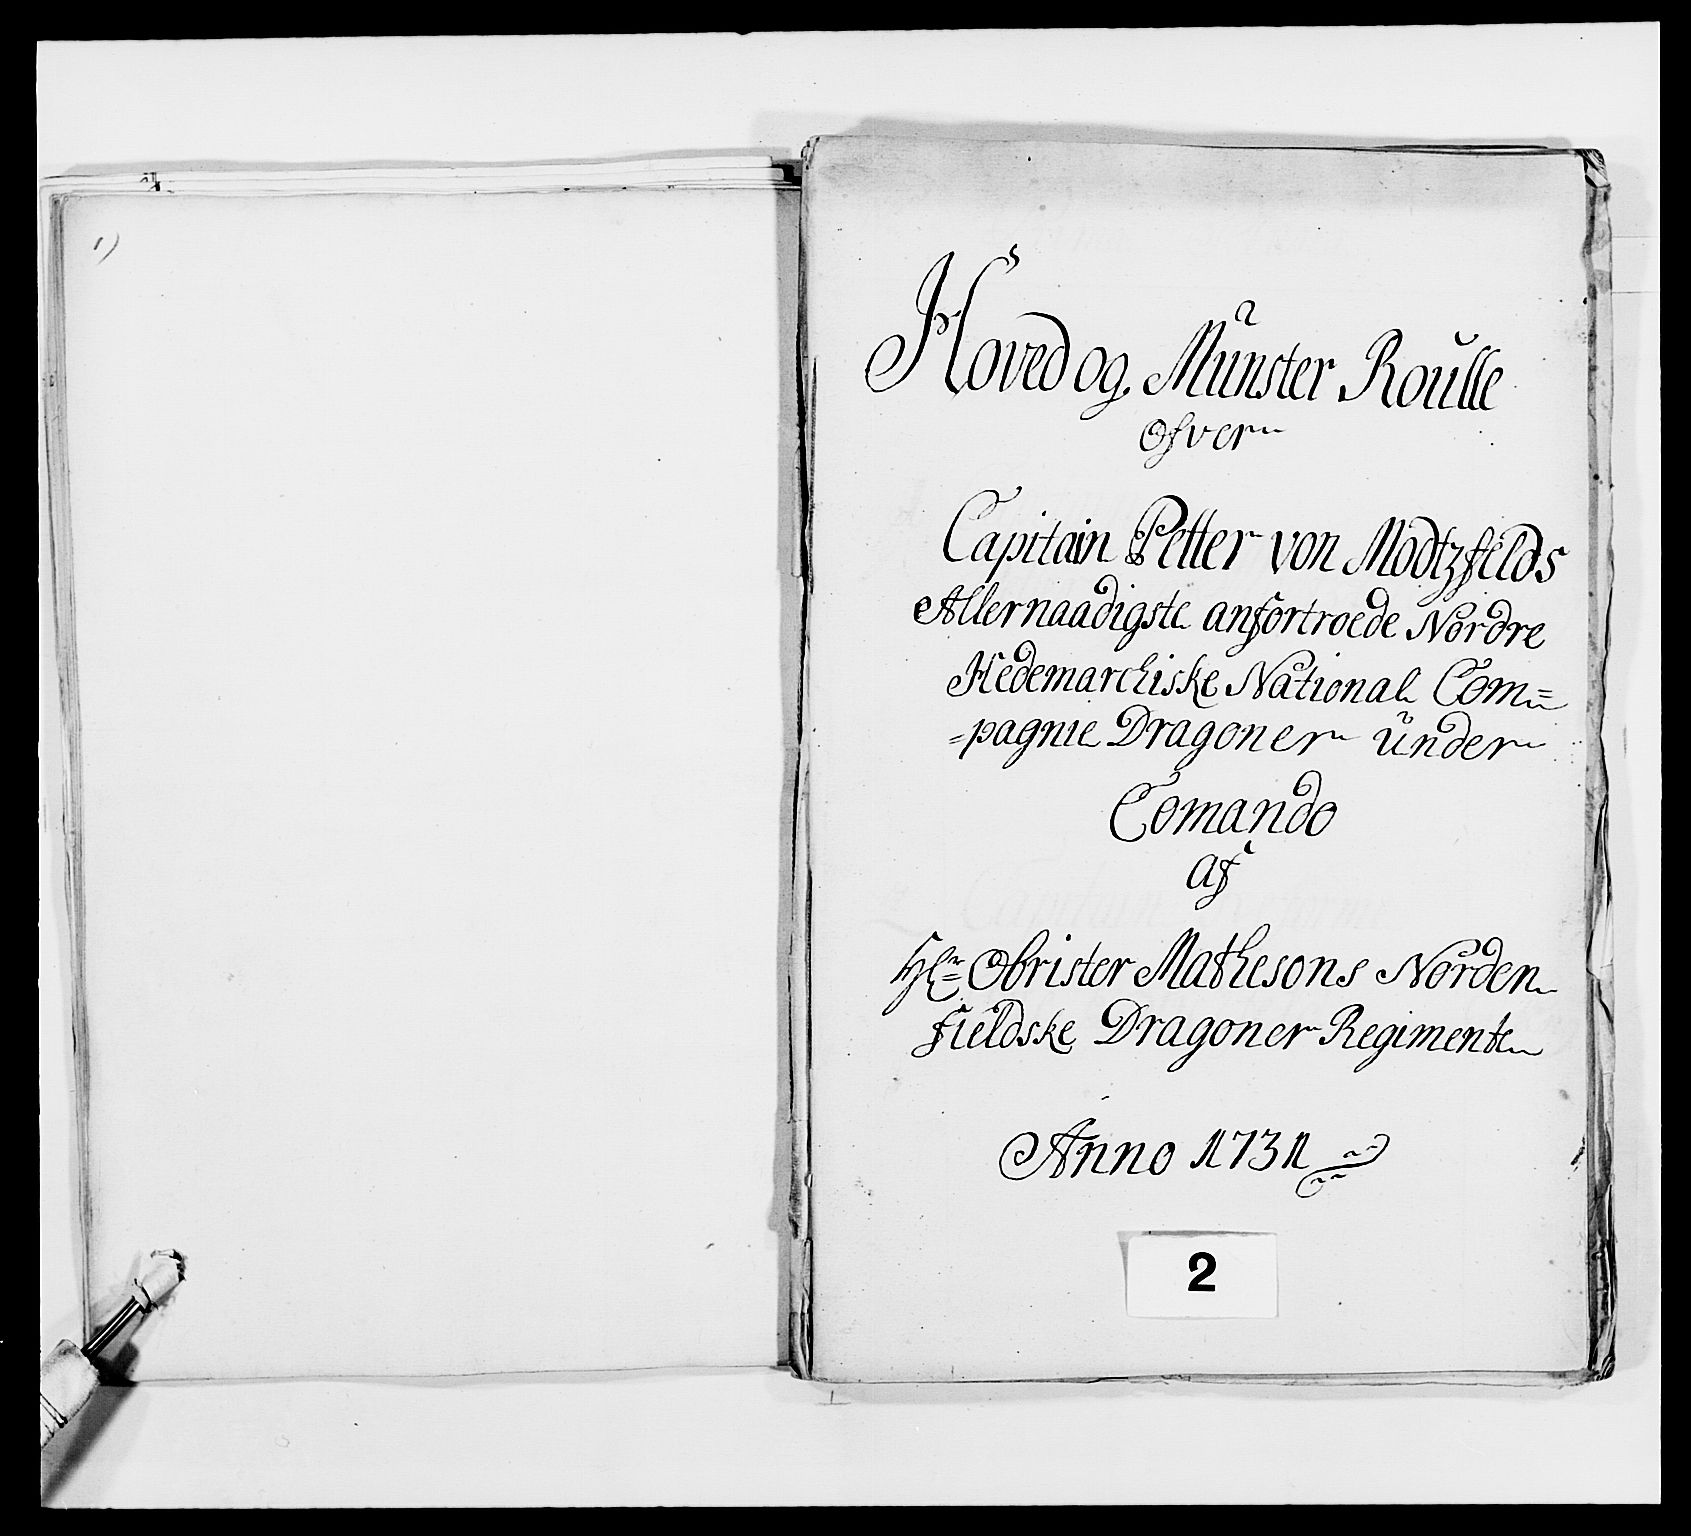 1)
Hoved og Münster Roulle
Ofver
Capitain Petter von Modtzfelds
Allernaadigste anfortroede Nordre
Hedemarchiske National Com=
=pagnie Dragoner ūnder
Comando
af
Hr= Obrister Mathesons Norden
fieldske Dragoner Regimente
Anno 1731
2